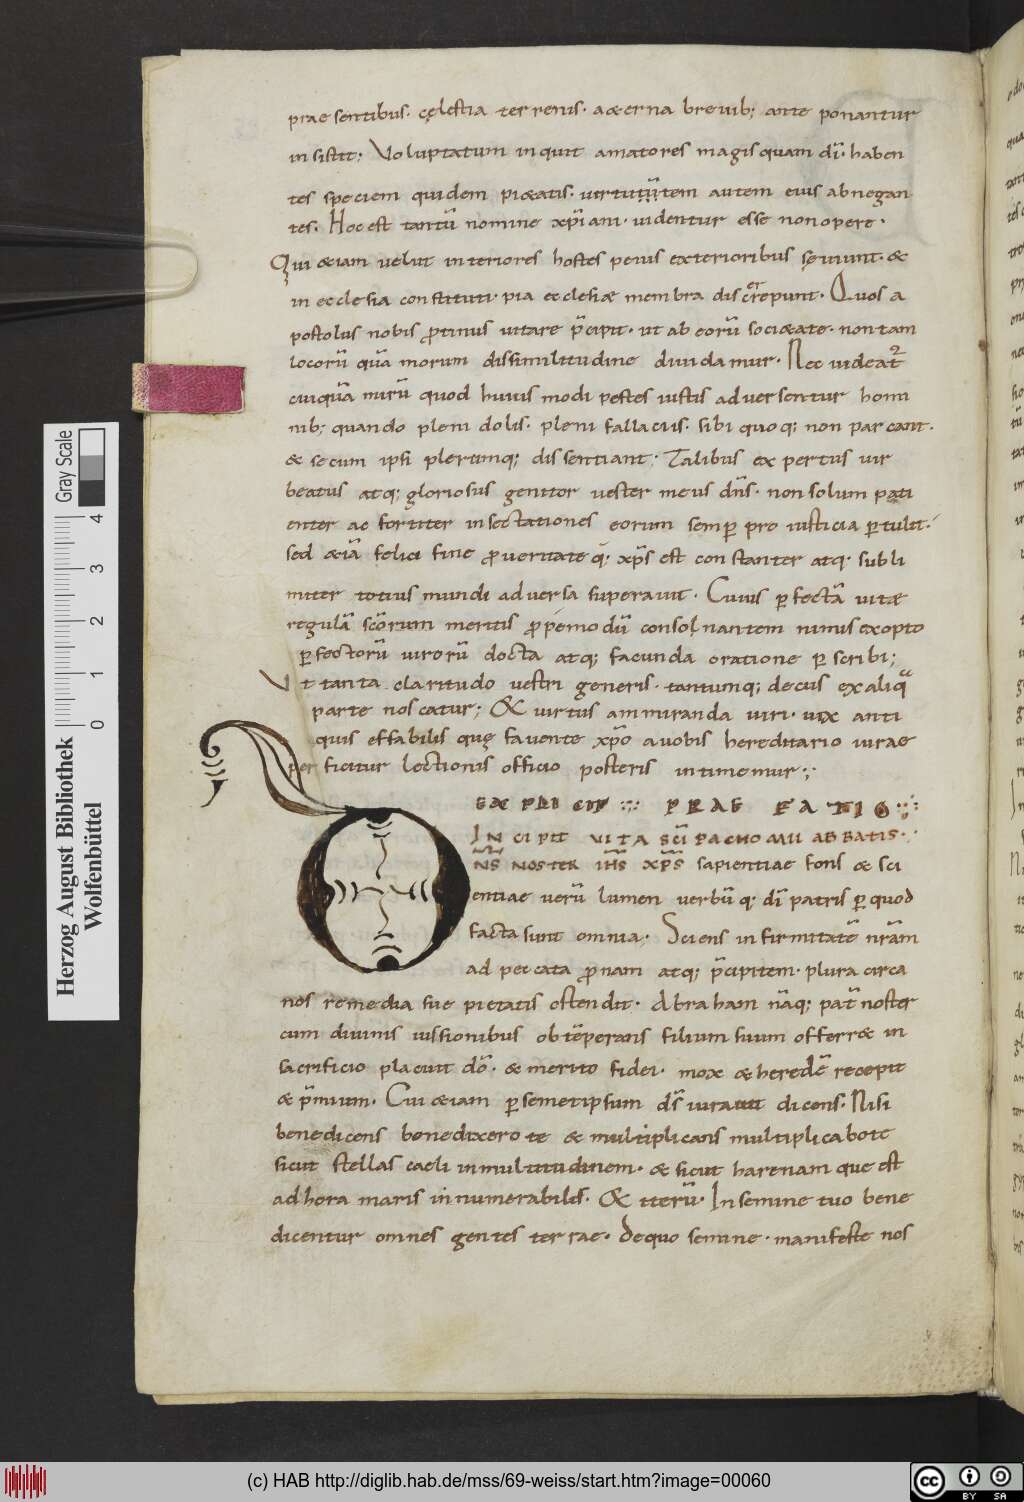 praesentibus· cęlestia terrenis· aeterna brevib; anteponantur
insistit; Voluptatum inquit amatores magis quam dī· haben
tes speciem quidem pietatis· virtutū tem autem eius abnegan
tes· Hoc est tantū nomine xp̄iani· videntur esse non opere·
Qui etiam velut interiores hostes peius exterioribus sęviunt· &
in ecclesia constituti· pia ecclesiae membra discerepunt· Quos a
postolus nobis protinus vitare p̄cipit· ut ab eorū societate· non tam
locorū quā morum dissimilitudine dividamur· Nec videat̄
cuiquā mirū quod huius modi pestes iustis adversentur homi
nib; quando pleni dolis· pleni fallaciis· sibi quoq; non parcant·
& secum ipsi plerumq; dissentiant; Talibus expertus vir
beatus atq; gloriosus genitor vester meus dn̄s· non solum pati
enter ac fortiter insectationes eorum semp pro iusticia ptulit·
sed etiā felici fine pro veritate q· xp̄s est constanter atq· subli
miter totius mundi adversa superavit· Cuius pfectā vitae
regulā scōrum meritis propemodū consonantem nimis exopto
pfectorū virorū docta atq; facunda oratione pscribi;
Ut tanta claritudo vestri generis· tantumq; decus ex aliq̄
parte noscatur; & virtus ammiranda viri· vix anti
quis effabilis quę favente xp̄o a vobis hereditario iurae
perficitur lectionis officio posteris intimemur;
EXPLICIT PRAEFATIO
INCIPIT VITA SC̄I PACHOMII ABBATIS·
DN̄S NOSTER IH̄S XP̄S sapientiae fons & sci
entiae verū lumen verbū q· dī patris p quod
facta sunt omnia· Sciens infirmitatē nrām
ad peccata pronam atq; p̄cipitem· plura circa
nos remedia sue pietatis ostendit· Abraham nāq; pat̄ noster
cum divinis iussionibus obtēperans filium suum offerre in
sacrificio placuit dō· & merito fidei· mox & heredē recepit
& p̄mium· Cui etiam p semetipsum ds̄ iuravit dicens· Nisi
benedicens benedixero te & multiplicans multiplicaboit
sicut stellas caeli in multitudinem· & sicut harenam que est
ad hora maris innumerabiles· & iterū· In semine tuo bene
dicentur omnes gentes terrae· De quo semine· manifeste nos
Herzog August Bibliothek
Wolfenbüttel
0 1 2 3 4
Gray Scale
(c) HAB http://diglib.hab.de/mss/69-weiss/start.htm?image=00060
cc BY SA